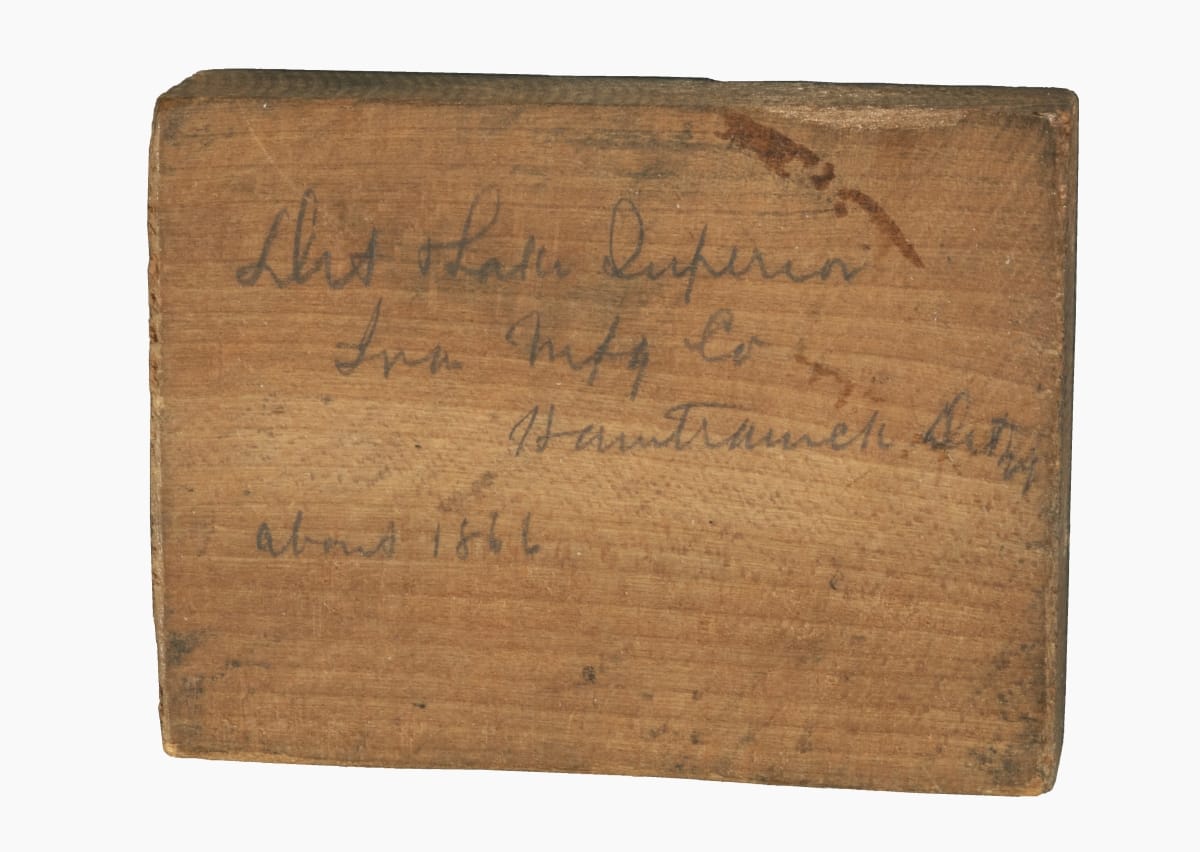 Det & Lake Superior
Iron Mfg Co
Hamtramck Det
about 1866